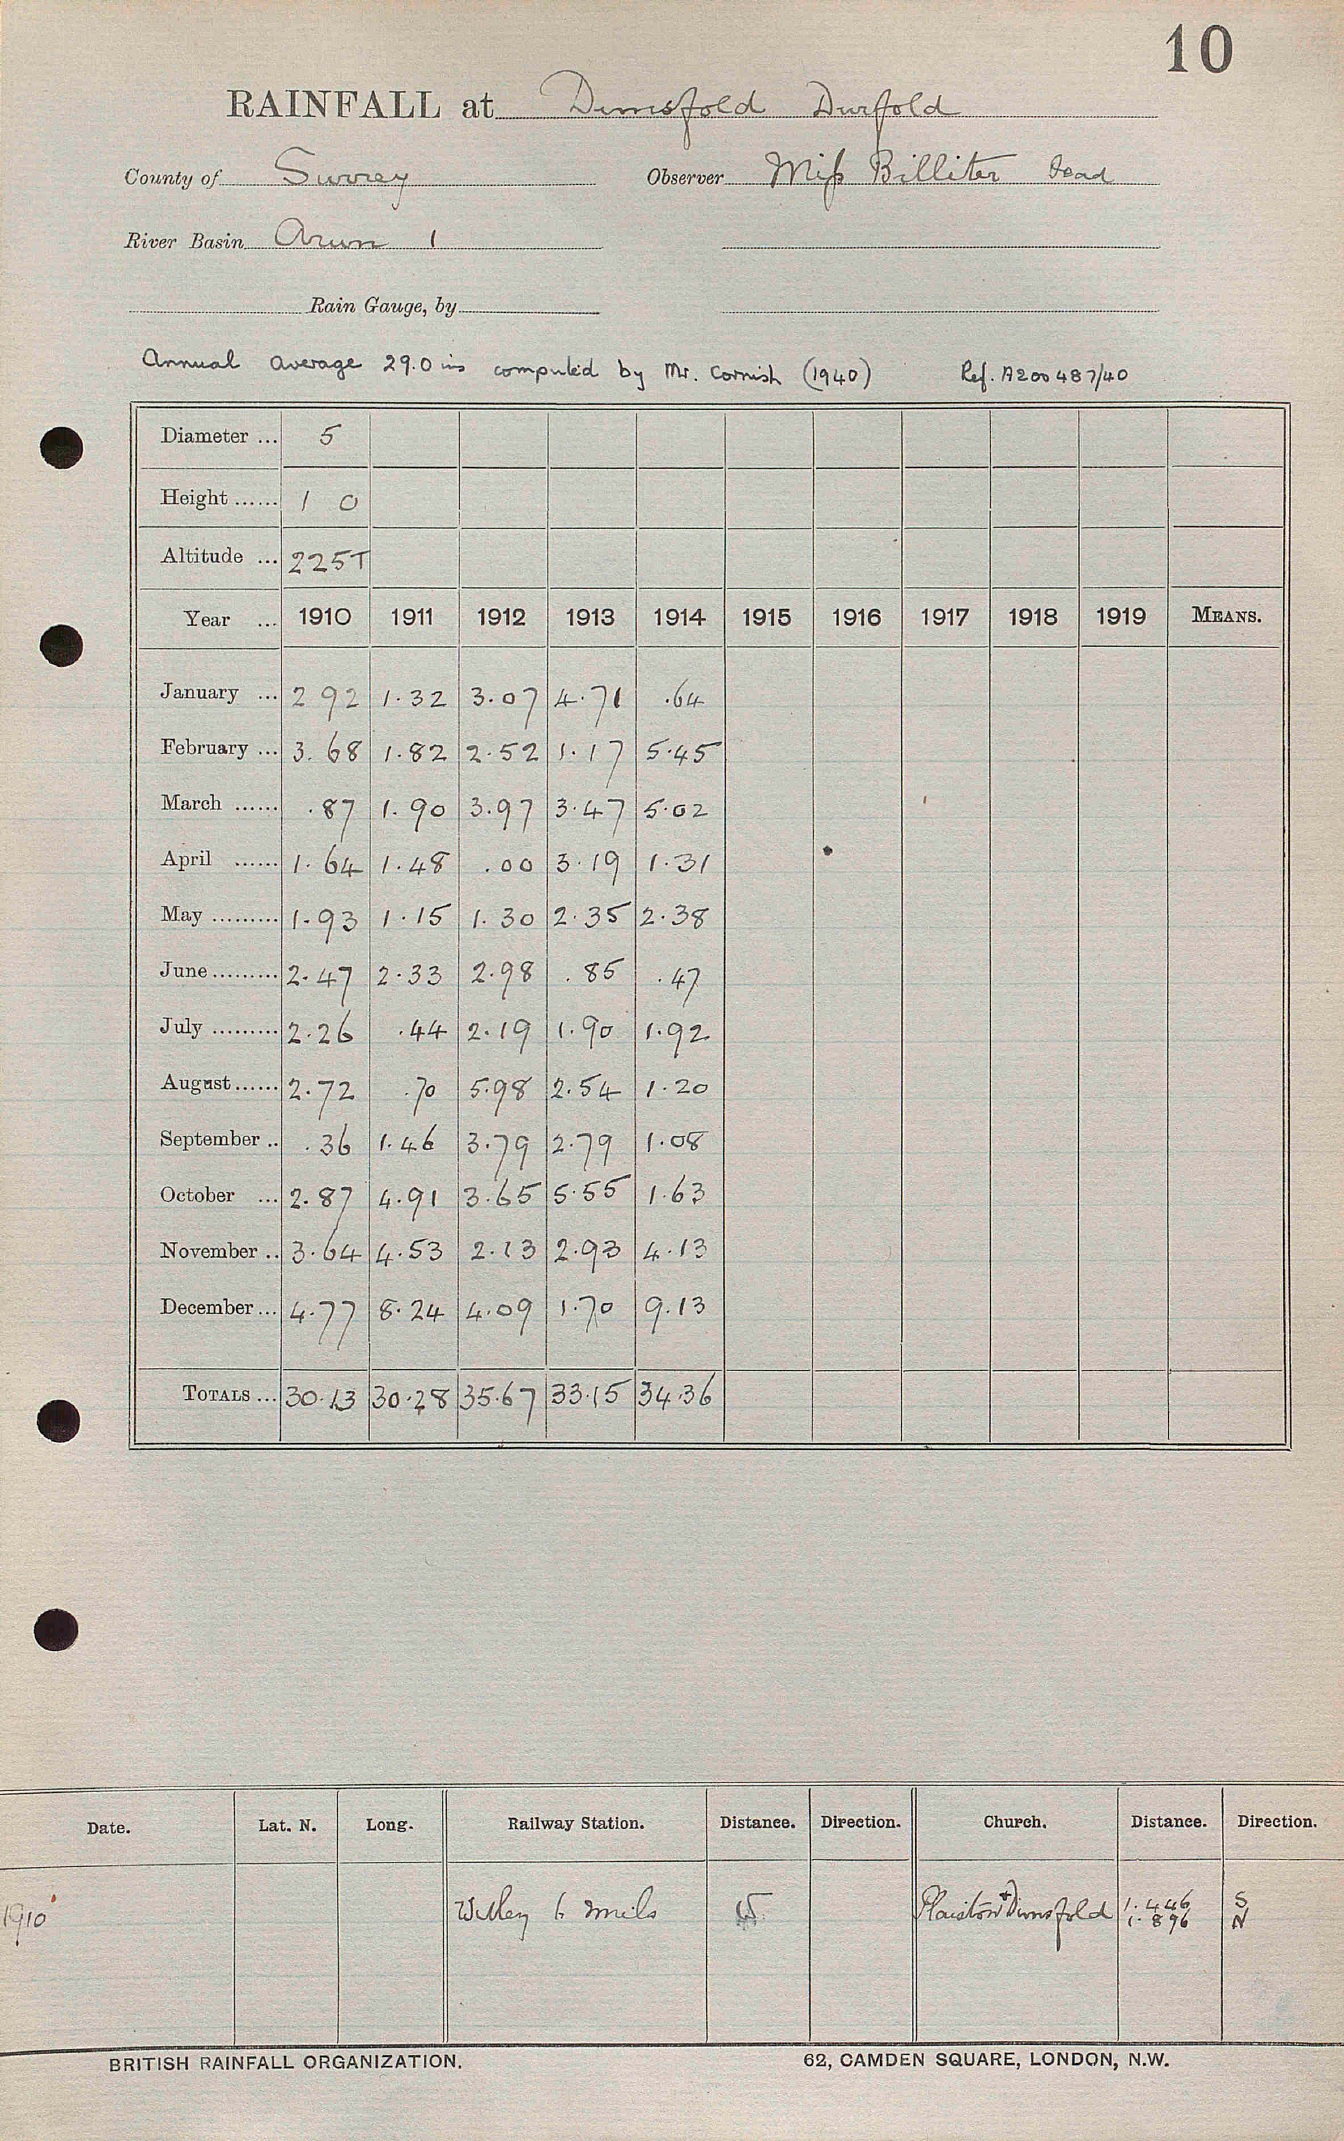 10
RAINFALL at Dunsfold Durfold
County of Surrey Observer Miss Billiter dead
River Basin Arun 1
Rain Gauge, by
Annual average 29.0 ins computed by Mr. Cornish (1940) Ref. A200487/40
Diameter ... 5
Height ...... 1 0
Altitude ... 225T
Year ... 1910 1911 1912 1913 1914 1915 1916 1917 1918 1919 MEANS.
January ... 2 92 1.32 3.07 4.71 .64
February ... 3.68 1.82 2.52 1.17 5.45
March ...... .87 1.90 3.97 3.47 5.02
April ...... 1.64 1.48 .00 3.19 1.31
May ......... 1.93 1.15 1.30 2.35 2.38
June ......... 2.47 2.33 2.98 .85 .47
July ......... 2.26 .44 2.19 1.90 1.92
August ...... 2.72 .70 5.98 2.54 1.20
September .. .36 1.46 3.79 2.79 1.08
October ... 2.87 4.91 3.65 5.55 1.63
November .. 3.64 4.53 2.13 2.93 4.13
December ... 4.77 8.24 4.09 1.70 9.13
TOTALS ... 30.13 30.28 35.67 33.15 34.36
Date. Lat. N. Long. Railway Station. Distance. Direction. Church. Distance. Direction.
1910 Witley 6 miles Plaistow + Dunsfold 1.446 S
1.896 N
BRITISH RAINFALL ORGANIZATION. 62, CAMDEN SQUARE, LONDON, N.W.